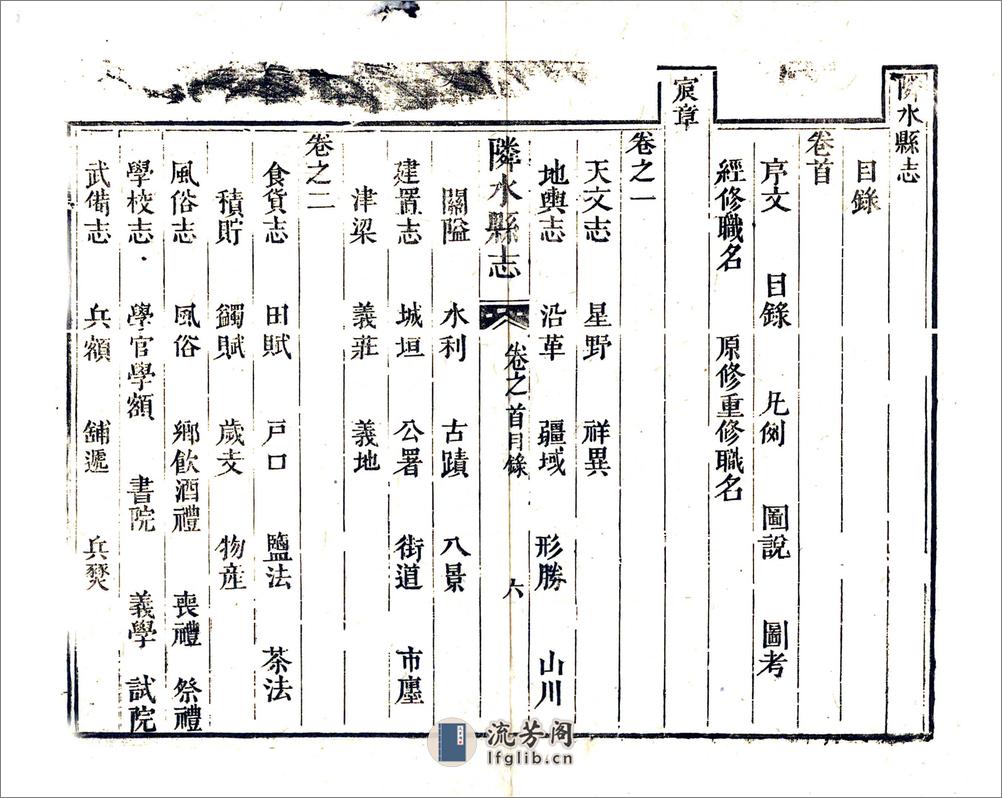 隣水縣志
目錄
卷首
序文 目錄 凡例 圖說 圖考
經修職名 原修重修職名
宸章
卷之一
天文志 星野 祥異
地輿志 沿革 疆域 形勝 山川
隣水縣志 卷之首目錄 六
關隘 水利 古蹟 八景
建置志 城垣 公署 街道 市廛
津梁 義莊 義地
卷之二
食貨志 田賦 戶口 鹽法 茶法
積貯 蠲賦 歲支 物産
風俗志 風俗 鄉飲酒禮 喪禮 祭禮
學校志 學官學額 書院 義學 試院
武備志 兵額 舖遞 兵燹
流芳阁
lfglib.cn